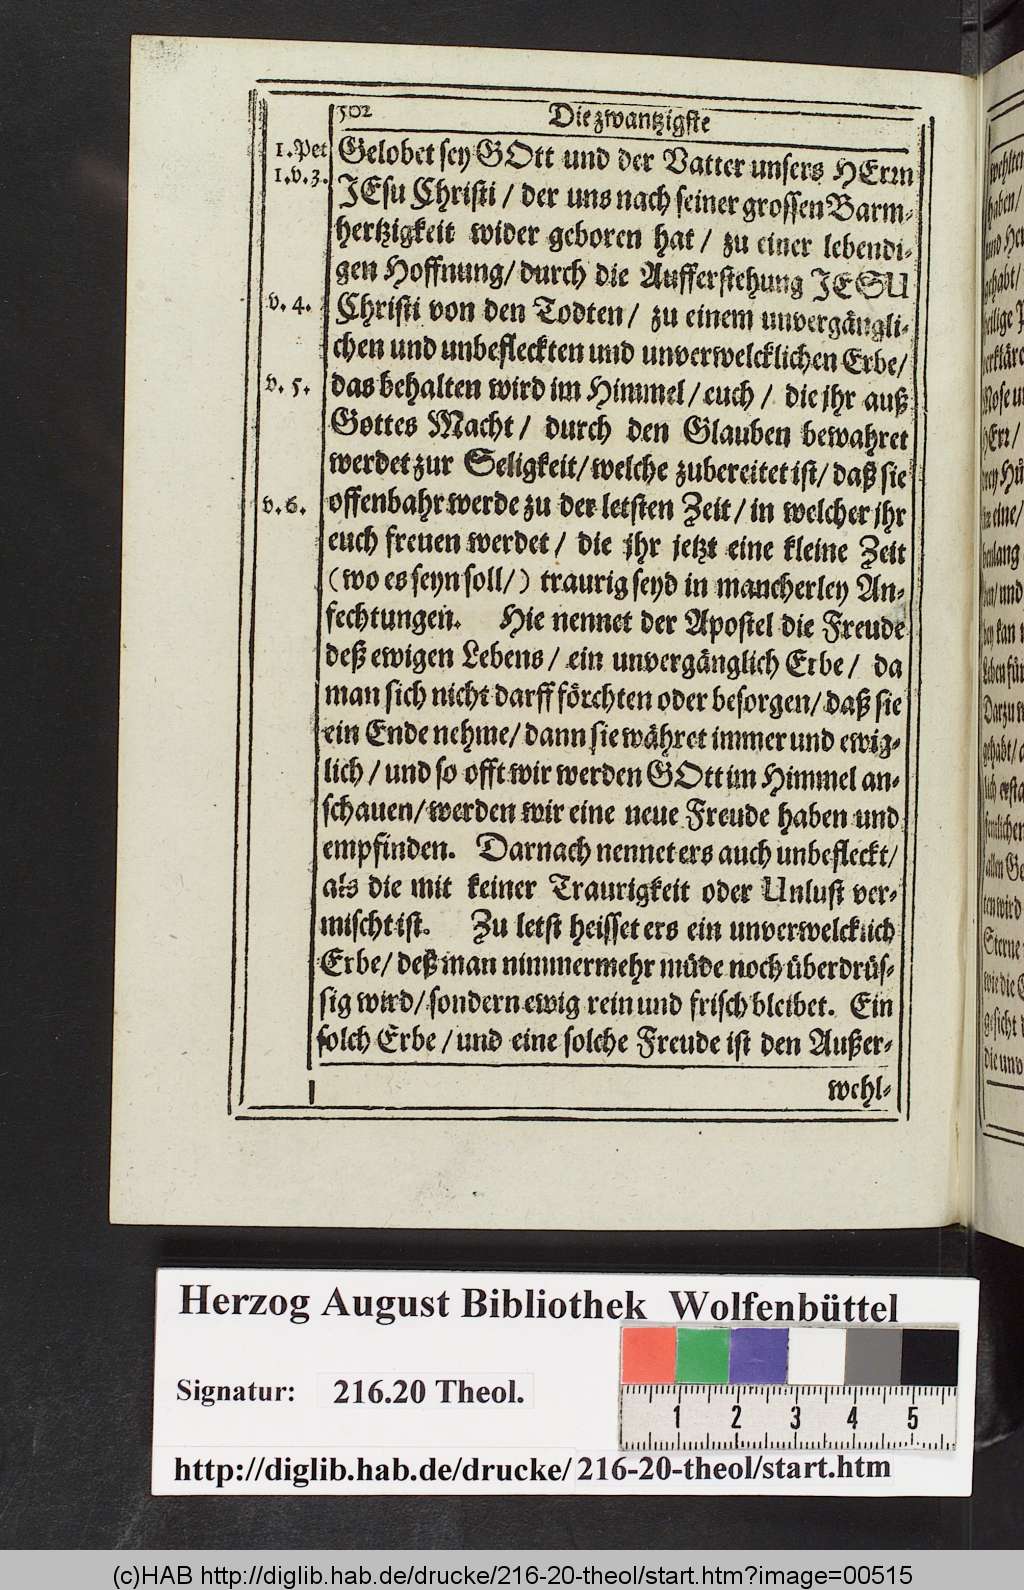 502 Die zwantzigste
1. Pet Gelobet sey GOtt und der Vatter unsers HErrn
1. v. 3. JEsu Christi / der uns nach seiner grossen Barm-
hertzigkeit wider geboren hat / zu einer lebendi-
gen Hoffnung / durch die Aufferstehung JESU
v. 4. Christi von den Todten / zu einem unvergängli-
chen und unbefleckten und unverwelcklichen Erbe /
v. 5. das behalten wird im Himmel / euch / die jhr auß
Gottes Macht / durch den Glauben bewahret
werdet zur Seligkeit / welche zubereitet ist / daß sie
v. 6. offenbahr werde zu der letsten Zeit / in welcher jhr
euch freuen werdet / die jhr jetzt eine kleine Zeit
(wo es seyn soll /) traurig seyd in mancherley An-
fechtungen. Hie nennet der Apostel die Freude
deß ewigen Lebens / ein unvergänglich Erbe / da
man sich nicht darff förchten oder besorgen / daß sie
ein Ende nehme / dann sie währet immer und ewig-
lich / und so offt wir werden GOtt im Himmel an-
schauen / werden wir eine neue Freude haben und
empfinden. Darnach nennet ers auch unbefleckt /
als die mit keiner Traurigkeit oder Unlust ver-
mischt ist. Zu letst heisset ers ein unverwelcklich
Erbe / deß man nimmermehr müde noch überdrüs-
sig wird / sondern ewig rein und frisch bleibet. Ein
solch Erbe / und eine solche Freude ist den Außer-
wehl-
Herzog August Bibliothek Wolfenbüttel
Signatur: 216.20 Theol.
1 2 3 4 5
http://diglib.hab.de/drucke/216-20-theol/start.htm
(c)HAB http://diglib.hab.de/drucke/216-20-theol/start.htm?image=00515